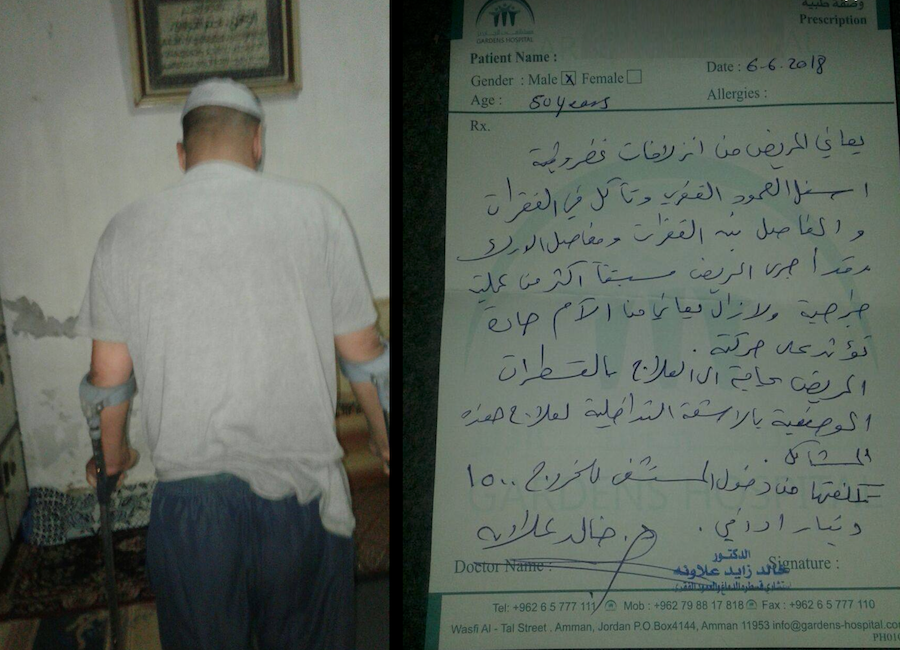 وصفة طبية
Prescription
GARDENS HOSPITAL
Patient Name :
Date : 6-6-2018
Gender : Male x Female
Age : 50 years
Allergies :
Rx.
يعاني المريض من انزلاقات غضروفية
اسفل العمود الفقري وتآكل في الفقرات
والمفاصل بين الفقرات ومفاصل الورك
وقد أجرى المريض مسبقاً اكثر من عملية
جراحية ولازال يعاني من الآم حادة
تؤثر على حركته .
المريض بحاجة الى العلاج بالقسطرات
الوصفية بالاشعة التداخلية لعلاج هذه
المشاكل
تكلفتها من دخول المستشفى للخروج ١٥٠٠
دينار اردني .
د. خالد علاونه
الدكتور
خالد زايد علاونه
Doctor Name :
Signature :
Tel: +962 6 5 777 111 Mob : +962 79 88 17 818 Fax : +962 6 5 777 110
Wasfi Al - Tal Street , Amman, Jordan P.O.Box4144, Amman 11953 info@gardens-hospital.com